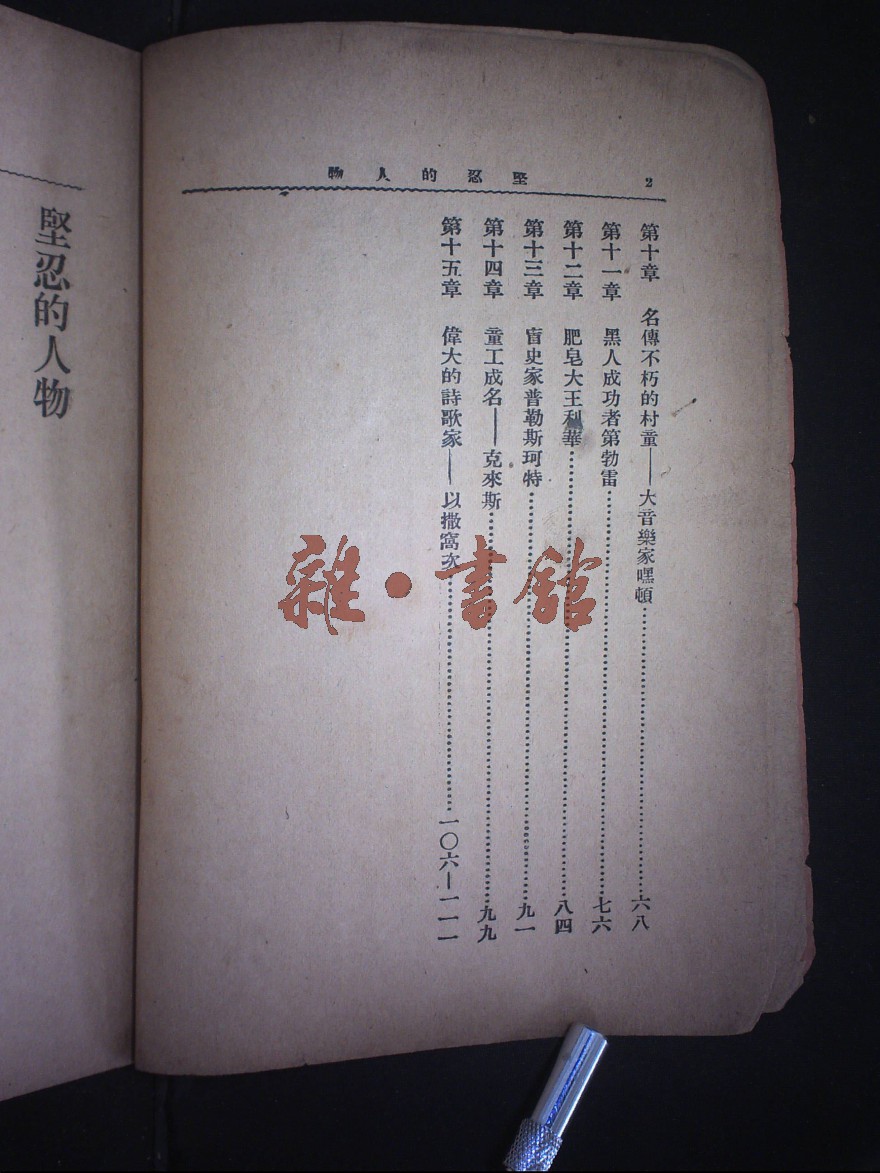 2 堅忍的人物
第十章 名傳不朽的村童——大音樂家嘿頓……六八
第十一章 黑人成功者第勃雷……七六
第十二章 肥皂大王利華……八四
第十三章 盲史家普勒斯珂特……九一
第十四章 童工成名——克來斯……九九
第十五章 偉大的詩歌家——以撒窩次……一〇六—一一一
堅忍的人物
雜·書館